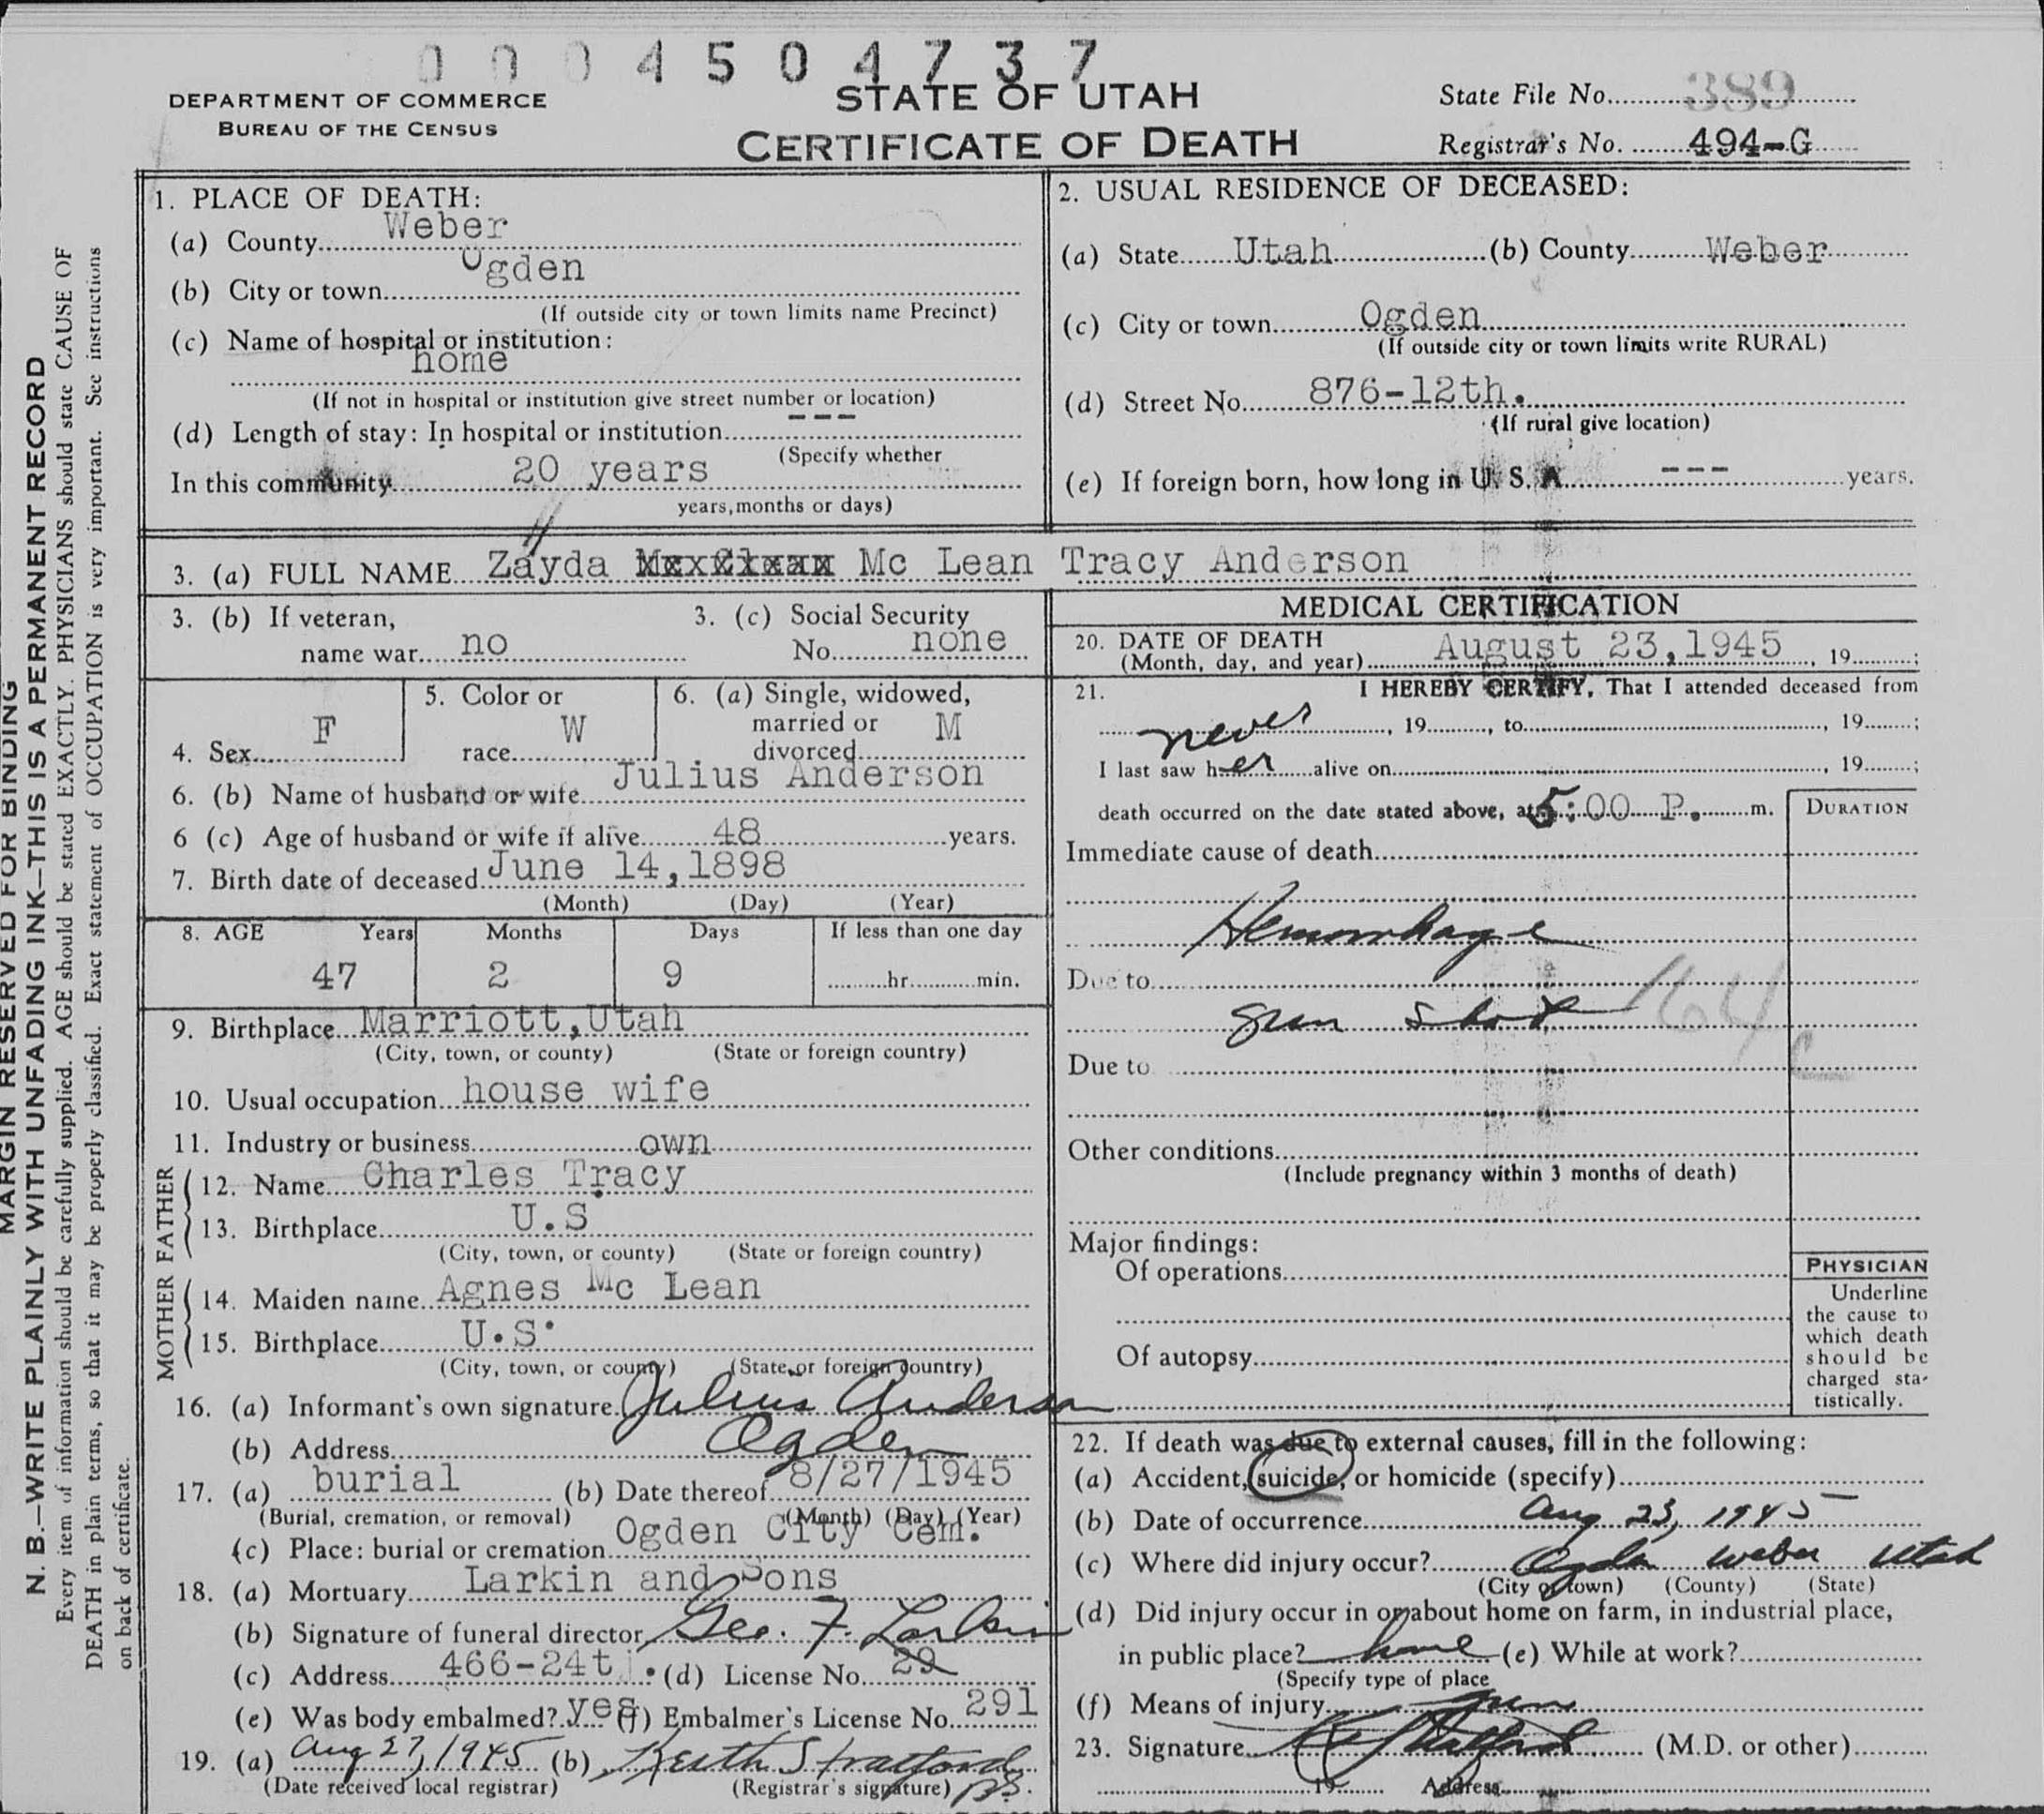 0004504737
DEPARTMENT OF COMMERCE
BUREAU OF THE CENSUS
STATE OF UTAH
CERTIFICATE OF DEATH
State File No. 389
Registrar's No. 494-G
MARGIN RESERVED FOR BINDING
N. B.—WRITE PLAINLY WITH UNFADING INK—THIS IS A PERMANENT RECORD
Every item of information should be carefully supplied. AGE should be stated EXACTLY. PHYSICIANS should state CAUSE OF
DEATH in plain terms, so that it may be properly classified. Exact statement of OCCUPATION is very important. See instructions
on back of certificate.
1. PLACE OF DEATH:
(a) County Weber
(b) City or town Ogden
(If outside city or town limits name Precinct)
(c) Name of hospital or institution:
home
(If not in hospital or institution give street number or location)
(d) Length of stay: In hospital or institution ---
(Specify whether
In this community 20 years
years, months or days)
2. USUAL RESIDENCE OF DECEASED:
(a) State Utah (b) County Weber
(c) City or town Ogden
(If outside city or town limits write RURAL)
(d) Street No. 876-12th.
(If rural give location)
(e) If foreign born, how long in U. S. A. --- years.
3. (a) FULL NAME Zayda Mc Lean Tracy Anderson
3. (b) If veteran,
name war no
3. (c) Social Security
No. none
4. Sex F
5. Color or
race W
6. (a) Single, widowed,
married or
divorced M
6. (b) Name of husband or wife Julius Anderson
6 (c) Age of husband or wife if alive 48 years.
7. Birth date of deceased June 14,1898
(Month) (Day) (Year)
8. AGE Years Months Days If less than one day
47 2 9 hr. min.
9. Birthplace Marriott,Utah
(City, town, or county) (State or foreign country)
10. Usual occupation house wife
11. Industry or business own
FATHER
12. Name Charles Tracy
13. Birthplace U.S
(City, town, or county) (State or foreign country)
MOTHER
14. Maiden name Agnes Mc Lean
15. Birthplace U.S.
(City, town, or county) (State or foreign country)
16. (a) Informant's own signature Julius Anderson
(b) Address Ogden
17. (a) burial (b) Date thereof 8/27/1945
(Burial, cremation, or removal) (Month) (Day) (Year)
(c) Place: burial or cremation Ogden City Cem.
18. (a) Mortuary Larkin and Sons
(b) Signature of funeral director Geo. F. Larkin
(c) Address 466-24t . (d) License No. 29
(e) Was body embalmed? yes (f) Embalmer's License No. 291
19. (a) Aug 27, 1945 (b) Keith Stratford
(Date received local registrar) (Registrar's signature)
MEDICAL CERTIFICATION
20. DATE OF DEATH
(Month, day, and year) August 23,1945, 19 ;
21. I HEREBY CERTIFY, That I attended deceased from
never, 19 , to , 19 ;
I last saw her alive on , 19 ;
death occurred on the date stated above, at 5:00 P. m.
DURATION
Immediate cause of death
Hemorrhage
Due to
gun shot 164c
Due to
Other conditions
(Include pregnancy within 3 months of death)
Major findings:
Of operations
Of autopsy
PHYSICIAN
Underline
the cause to
which death
should be
charged sta-
tistically.
22. If death was due to external causes, fill in the following:
(a) Accident, suicide, or homicide (specify)
(b) Date of occurrence Aug 23, 1945
(c) Where did injury occur? Ogden Weber Utah
(City or town) (County) (State)
(d) Did injury occur in or about home on farm, in industrial place,
in public place? home (e) While at work?
(Specify type of place
(f) Means of injury gun
23. Signature (M.D. or other)
19 Address